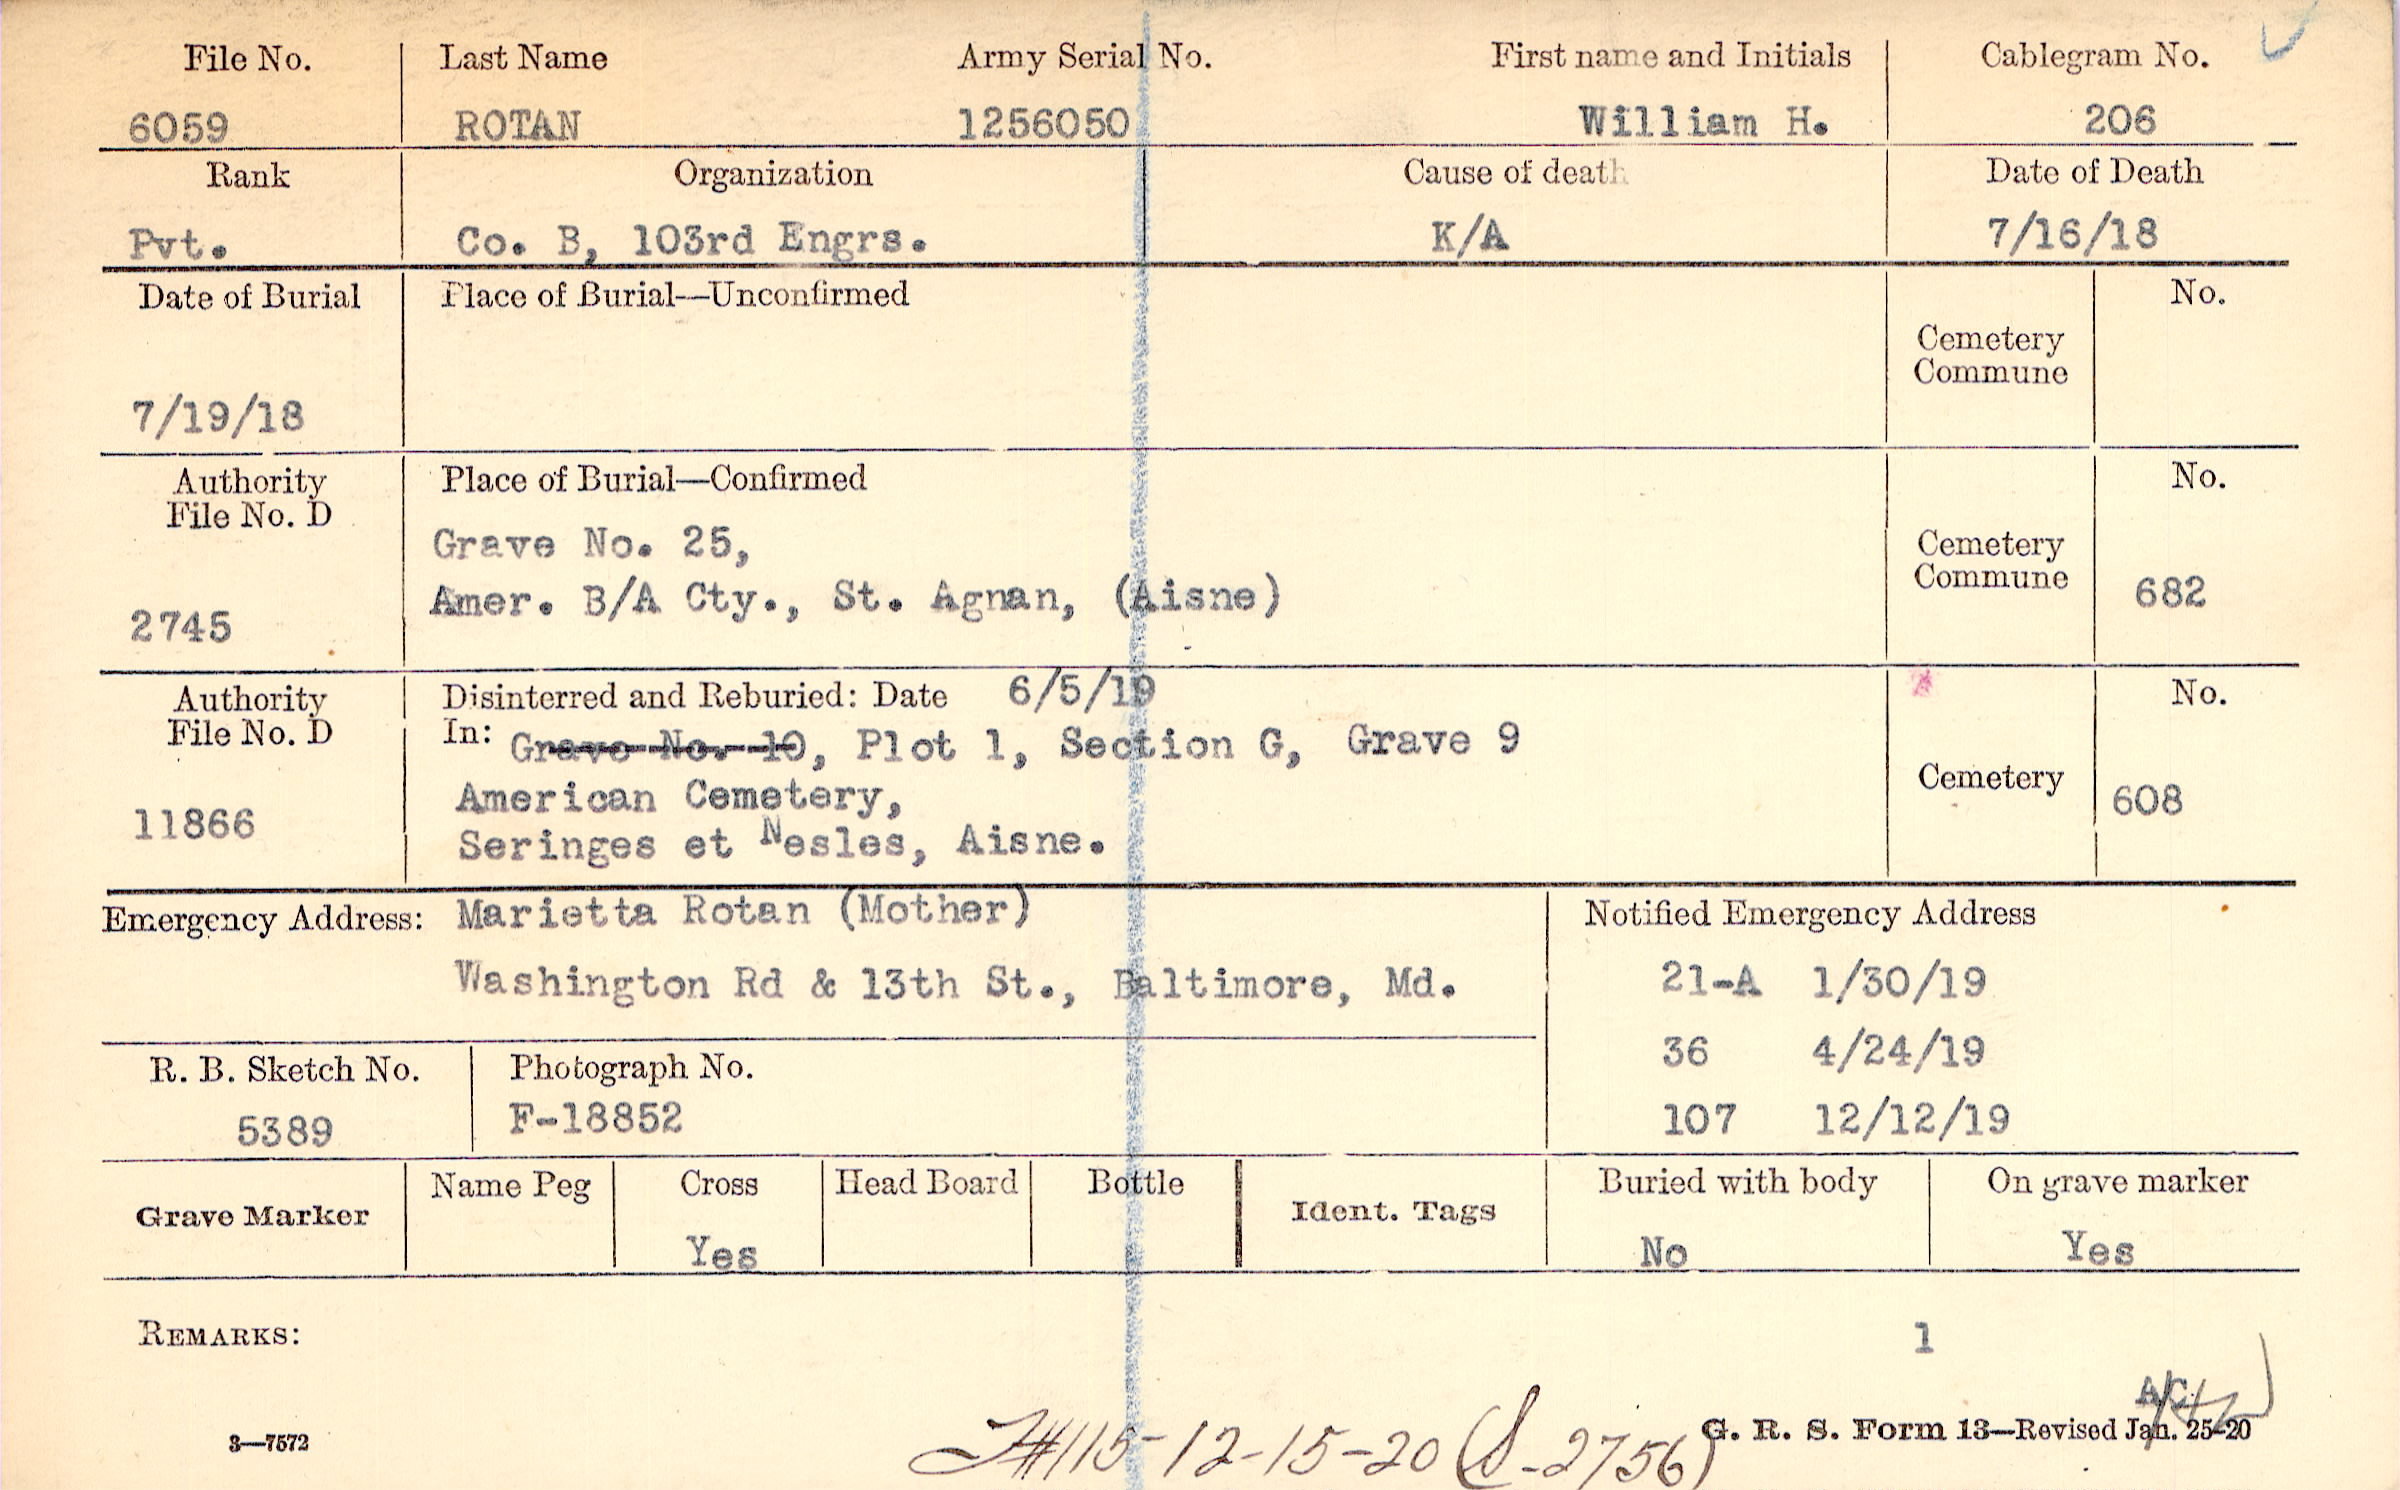 File No. Last Name Army Serial No. First name and Initials Cablegram No.
6059 ROTAN 1256050 William H. 206
Rank Organization Cause of death Date of Death
Pvt. Co. B, 103rd Engrs. K/A 7/16/18
Date of Burial Place of Burial—Unconfirmed No.
Cemetery
Commune
7/19/18
Authority Place of Burial—Confirmed No.
File No. D
Grave No. 25, Cemetery
Commune
2745 Amer. B/A Cty., St. Agnan, (Aisne) 682
Authority Disinterred and Reburied: Date 6/5/19 No.
File No. D In: Grave No. 10, Plot 1, Section G, Grave 9
American Cemetery, Cemetery 608
11866 Seringes et Nesles, Aisne.
Emergency Address: Marietta Rotan (Mother) Notified Emergency Address
Washington Rd & 13th St., Baltimore, Md. 21-A 1/30/19
R. B. Sketch No. Photograph No. 36 4/24/19
5389 F-18852 107 12/12/19
Grave Marker Name Peg Cross Head Board Bottle Ident. Tags Buried with body On grave marker
Yes No Yes
REMARKS: 1
3—7572 #115-12-15-20 (S-2756) G. R. S. Form 13—Revised Jan. 25-20